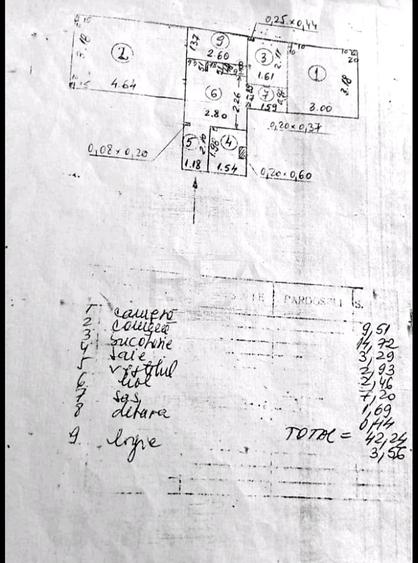 0,25×0,44
9
1.37
2.60
2
3.18
4.64
3
2.11
1.61
1
3.18
3.00
6
2.26
2.80
7
1.59
0,20×0,37
5
1.18
4
1.90
1.54
0,08×0,20
0,20×0,60
PARDOSELI S.
1 camera 9,51
2 camera 14,72
3 bucatarie 3,29
4 baie 2,93
5 vestibul 2,46
6 hol 7,20
7 sas 1,69
8 debara 0,44
TOTAL = 42,24
9 logie 3,56